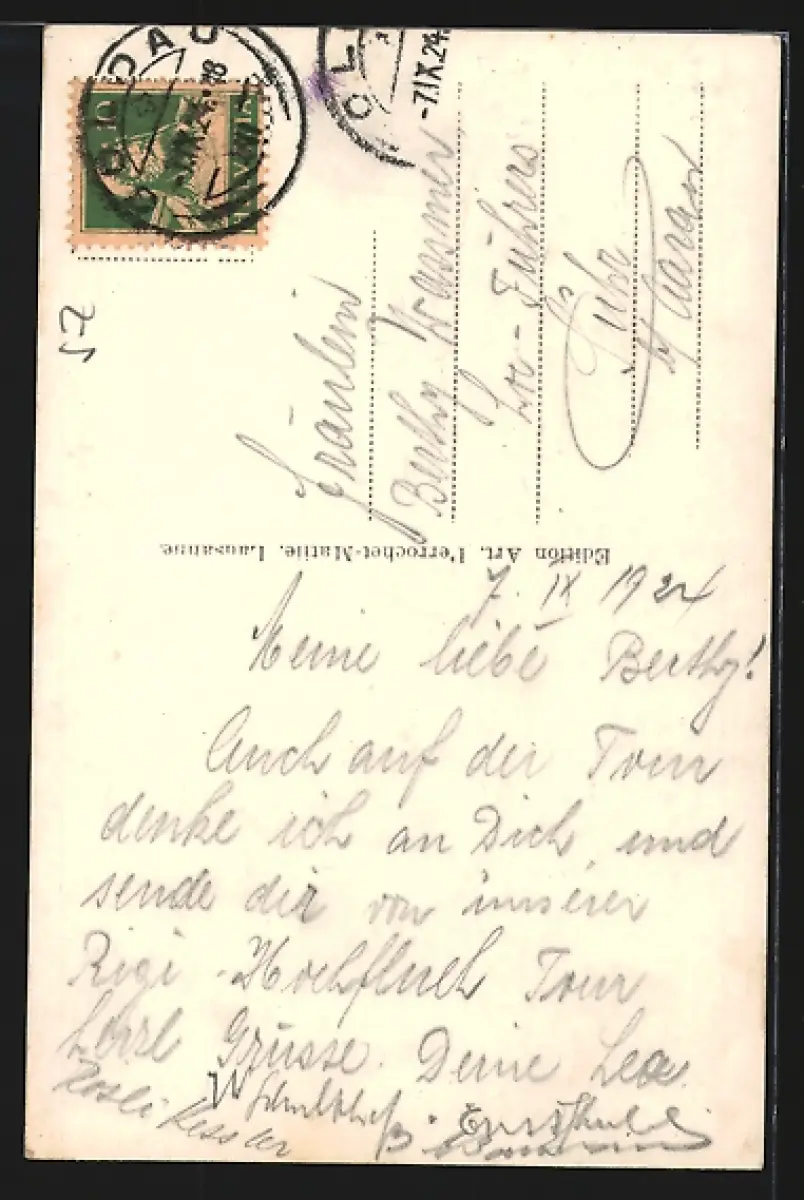 GOLDAU
OLT
-7.IX.24
HELVETIA
10
Fräulein
Berthy Wammer
Lok-Führers
Suhr
b/ Aarau
Edition Art. Perrochet-Matile. Lausanne.
7. IX 1924
Meine liebe Berthy!
Auch auf der Tour
denke ich an Dich, und
sende dir von unserer
Rigi-Hochfluh Tour
herzl Grüsse. Deine Lea
Rösli Kessler